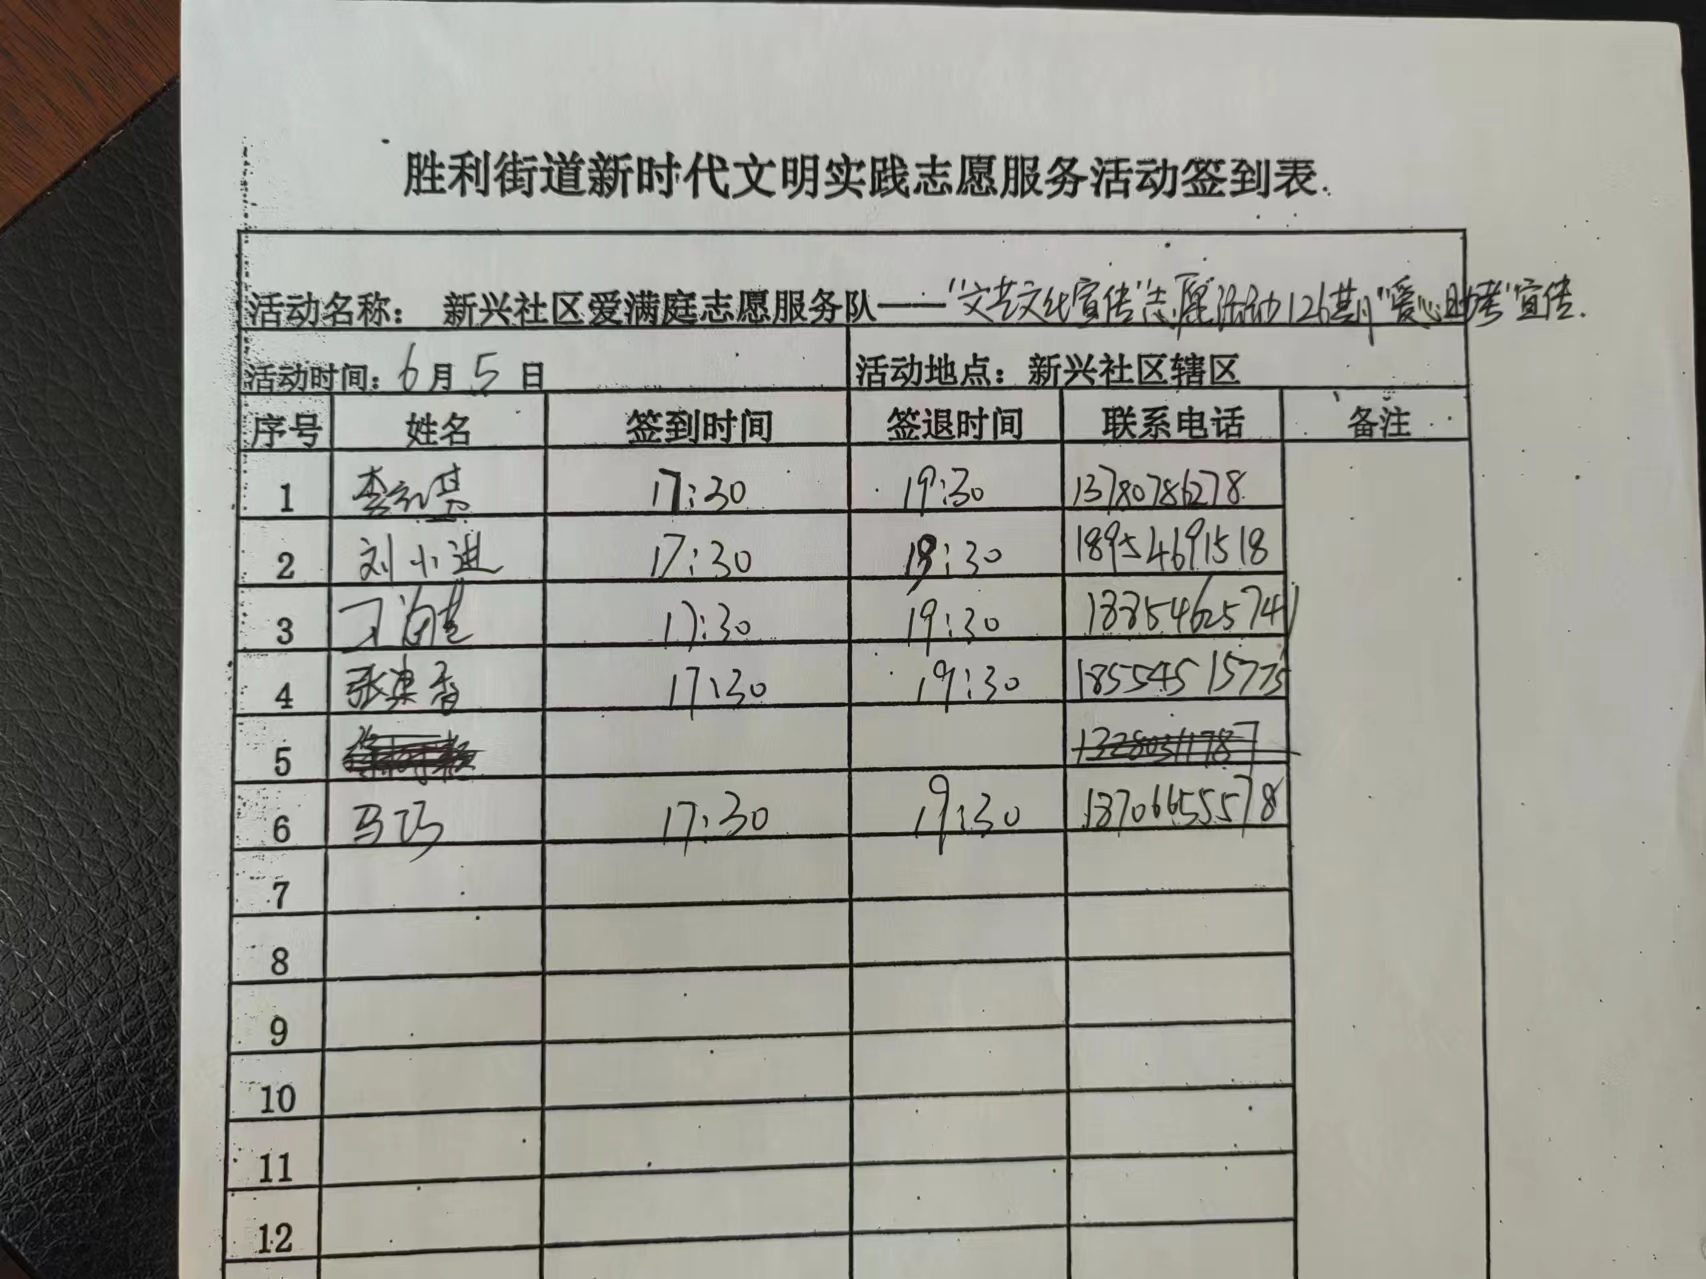 胜利街道新时代文明实践志愿服务活动签到表.
活动名称： 新兴社区爱满庭志愿服务队——"文艺文化宣传"志愿活动126期"爱心助考"宣传.
活动时间：6月5日 活动地点：新兴社区辖区
序号 姓名 签到时间 签退时间 联系电话 备注
1 17:30 19:30 13780786278
2 刘小进 17:30 19:30 18954691518
3 17:30 19:30 18854625741
4 17:30 19:30
5
6 马巧 17:30 19:30 18706655578
7
8
9
10
11
12